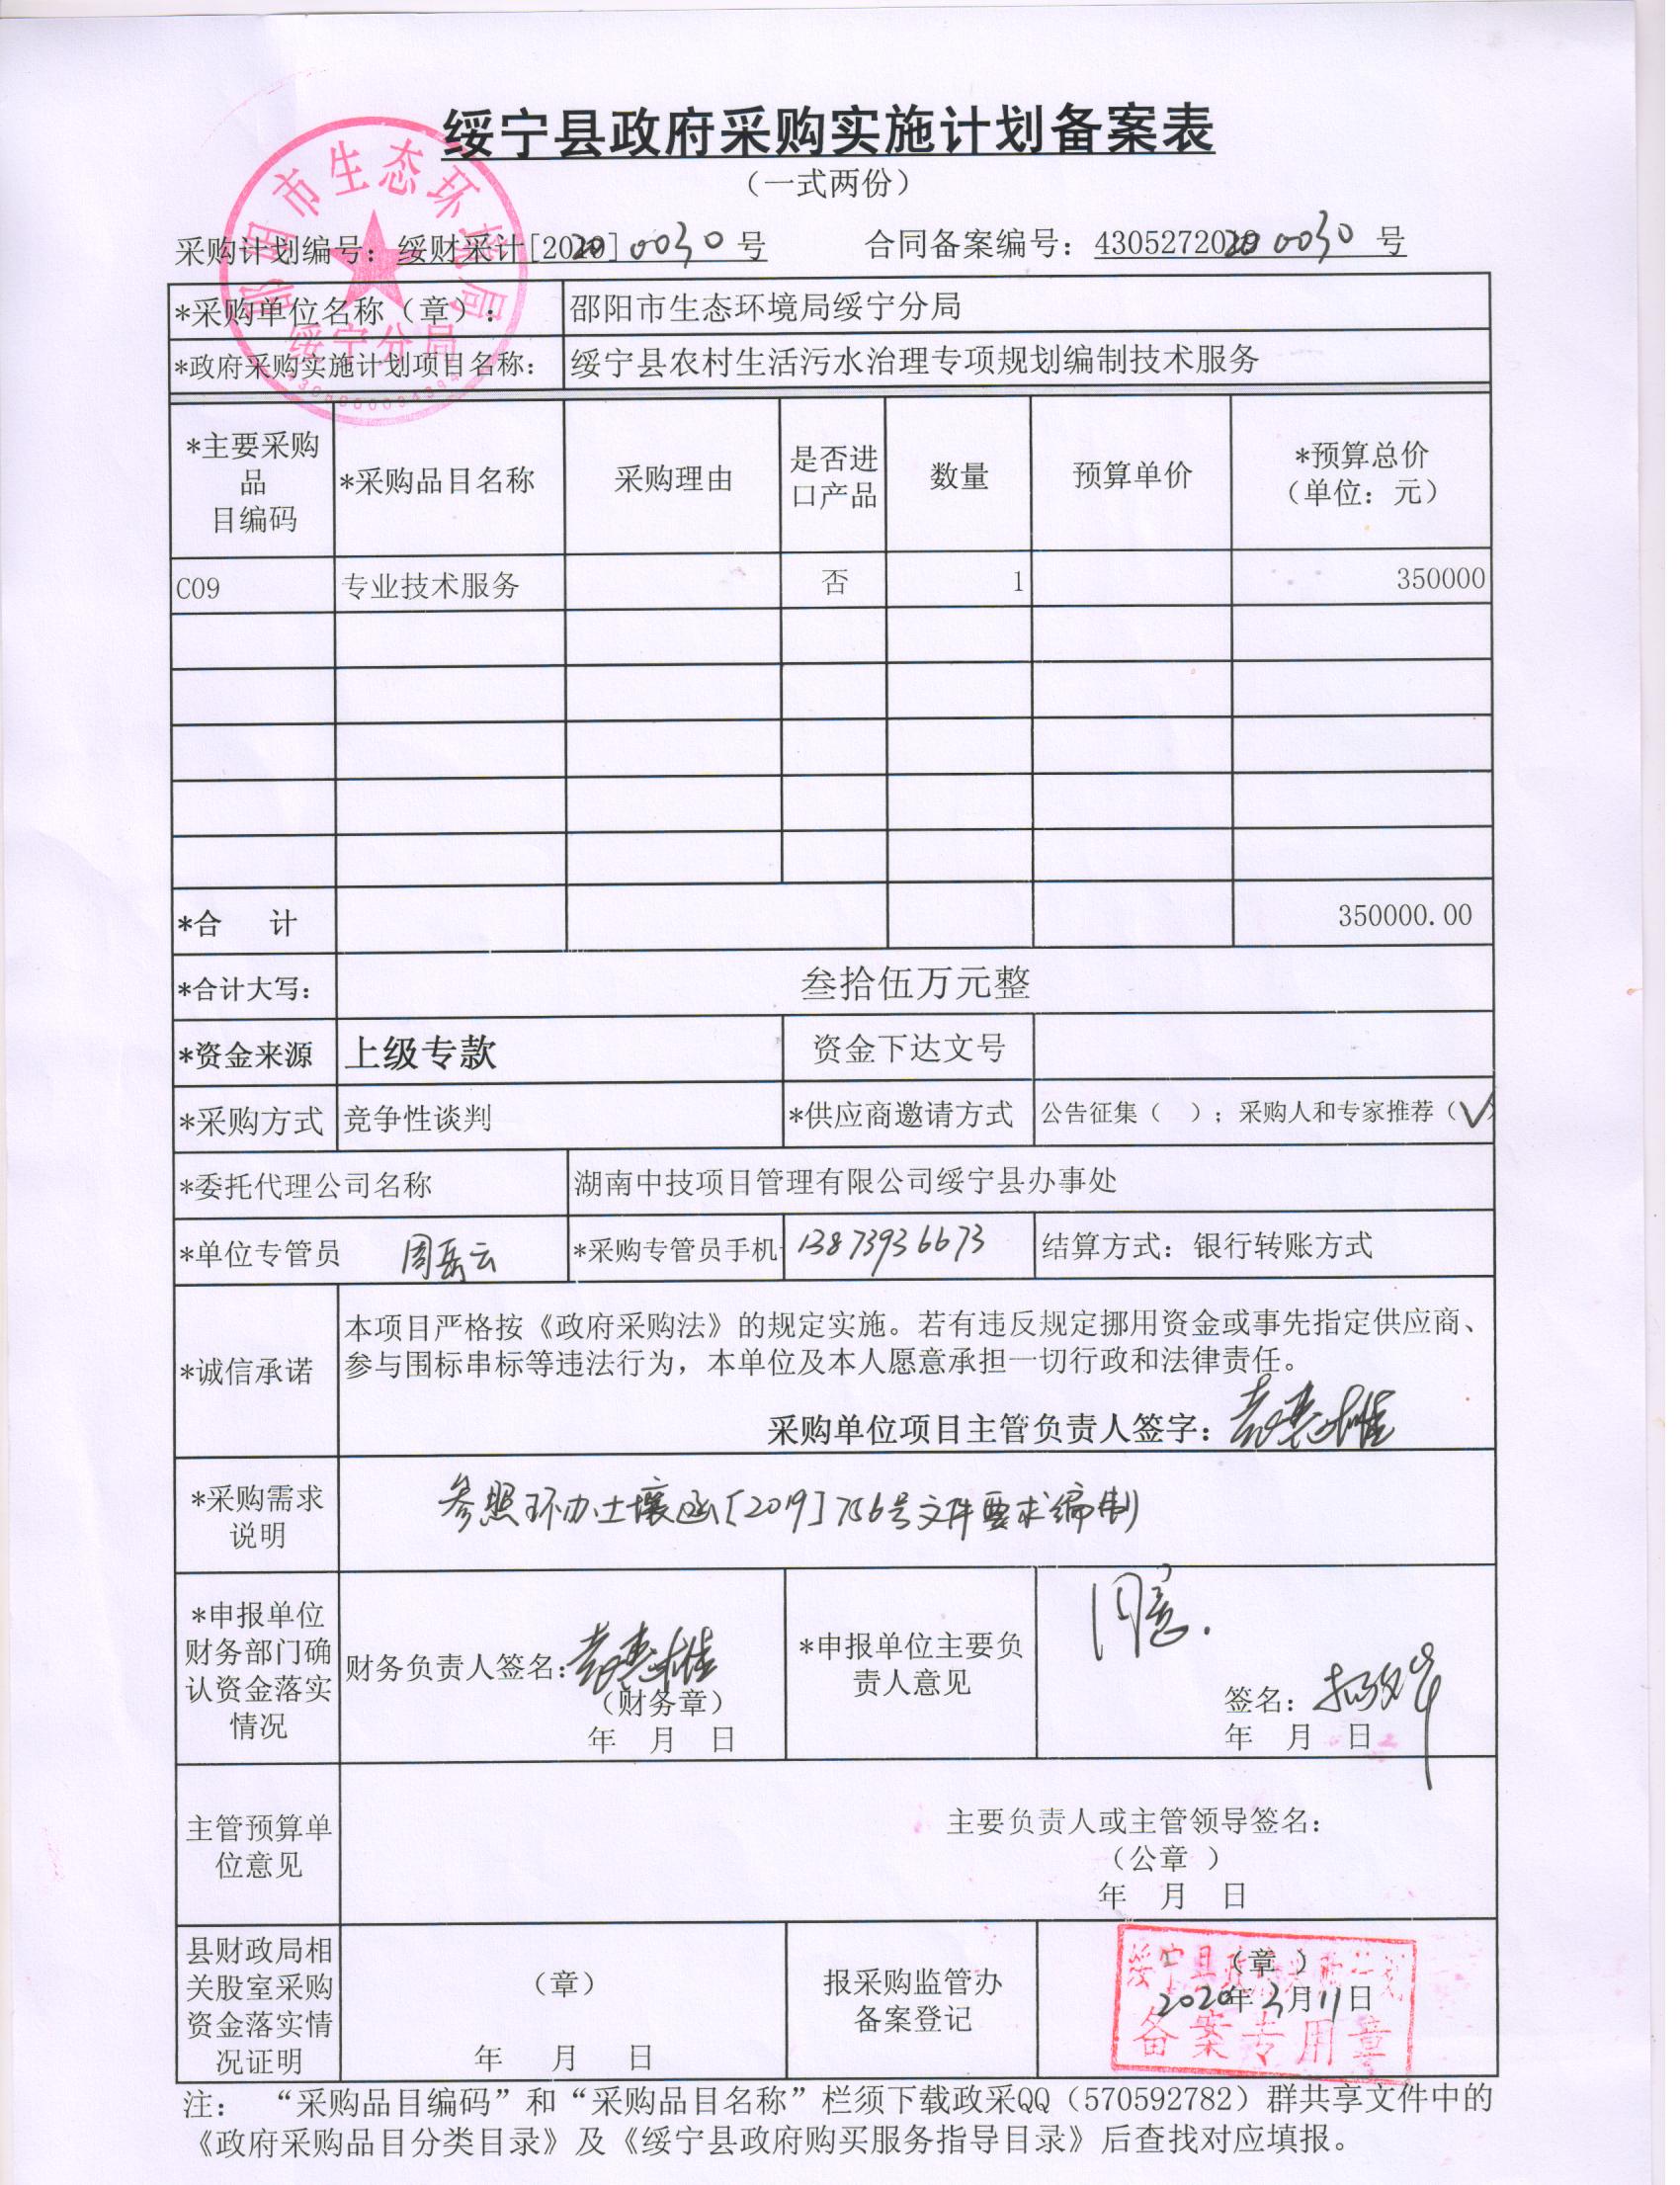 绥宁县政府采购实施计划备案表
（一式两份）
采购计划编号：绥财采计[2020] 0030 号 合同备案编号：4305272020 0030 号
*采购单位名称（章）： 邵阳市生态环境局绥宁分局
*政府采购实施计划项目名称： 绥宁县农村生活污水治理专项规划编制技术服务
邵阳市生态环境局
绥宁分局
*主要采购
品
目编码
*采购品目名称
采购理由
是否进
口产品
数量
预算单价
*预算总价
（单位：元）
C09 专业技术服务 否 1 350000
*合 计 350000.00
*合计大写： 叁拾伍万元整
*资金来源 上级专款 资金下达文号
*采购方式 竞争性谈判 *供应商邀请方式 公告征集（ ）；采购人和专家推荐（√）
*委托代理公司名称 湖南中技项目管理有限公司绥宁县办事处
*单位专管员 周岳云 *采购专管员手机 13873936673 结算方式：银行转账方式
*诚信承诺
本项目严格按《政府采购法》的规定实施。若有违反规定挪用资金或事先指定供应商、
参与围标串标等违法行为，本单位及本人愿意承担一切行政和法律责任。
采购单位项目主管负责人签字：
*采购需求
说明
参照环办土壤函[2019]756号文件要求编制
*申报单位
财务部门确
认资金落实
情况
财务负责人签名：
（财务章）
年 月 日
*申报单位主要负
责人意见
同意.
签名：
年 月 日
主管预算单
位意见
主要负责人或主管领导签名：
（公章 ）
年 月 日
县财政局相
关股室采购
资金落实情
况证明
（章）
年 月 日
报采购监管办
备案登记
（章 ）
2020年3月11日
备案专用章
注： “采购品目编码”和“采购品目名称”栏须下载政采QQ（570592782）群共享文件中的
《政府采购品目分类目录》及《绥宁县政府购买服务指导目录》后查找对应填报。